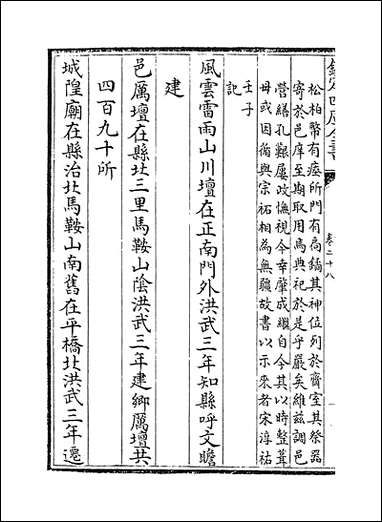 欽定四庫全書
卷二十八
松柏幣有瘞所門有扃鐍其神位列於齋室其祭器
寄於邑庠至期取用焉典祀於是乎嚴矣維兹調邑
營繕孔艱屢改憮視今幸肇成繼自今其以時整葺
毋或因循與宗祏相為無疆故書以示来者宋淳祐
壬子
記
風雲雷雨山川壇在正南門外洪武三年知縣呼文瞻
建
邑厲壇在縣北三里馬鞍山陰洪武三年建鄉厲壇共
四百九十所
城隍廟在縣治北馬鞍山南舊在平橋北洪武三年遷